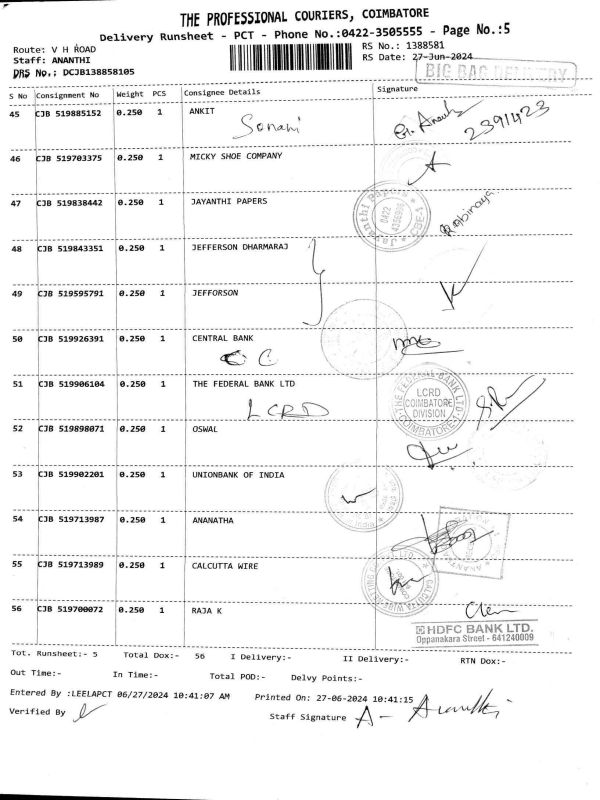 THE PROFESSIONAL COURIERS, COIMBATORE
Delivery Runsheet - PCT - Phone No.:0422-3505555 - Page No.:5
Route: V H ROAD
RS No.: 1388581
Staff: ANANTHI
RS Date: 27-Jun-2024
DRS No.: DCJB138858105
BIG BAG DELIVERY
S No Consignment No Weight PCS Consignee Details Signature
45 CJB 519885152 0.250 1 ANKIT
2391423
46 CJB 519703375 0.250 1 MICKY SHOE COMPANY
47 CJB 519838442 0.250 1 JAYANTHI PAPERS
Jayanthi Papers
0422
48 CJB 519843351 0.250 1 JEFFERSON DHARMARAJ
49 CJB 519595791 0.250 1 JEFFORSON
50 CJB 519926391 0.250 1 CENTRAL BANK
51 CJB 519906104 0.250 1 THE FEDERAL BANK LTD
LCRD
THE FEDERAL BANK LTD
LCRD
COIMBATORE
DIVISION
COIMBATORE
52 CJB 519898071 0.250 1 OSWAL
53 CJB 519902201 0.250 1 UNIONBANK OF INDIA
54 CJB 519713987 0.250 1 ANANATHA
55 CJB 519713989 0.250 1 CALCUTTA WIRE
56 CJB 519700072 0.250 1 RAJA K
HDFC BANK LTD.
Oppanakara Street - 641240009
Tot. Runsheet:- 5 Total Dox:- 56 I Delivery:- II Delivery:- RTN Dox:-
Out Time:- In Time:- Total POD:- Delvy Points:-
Entered By :LEELAPCT 06/27/2024 10:41:07 AM Printed On: 27-06-2024 10:41:15
Verified By
Staff Signature